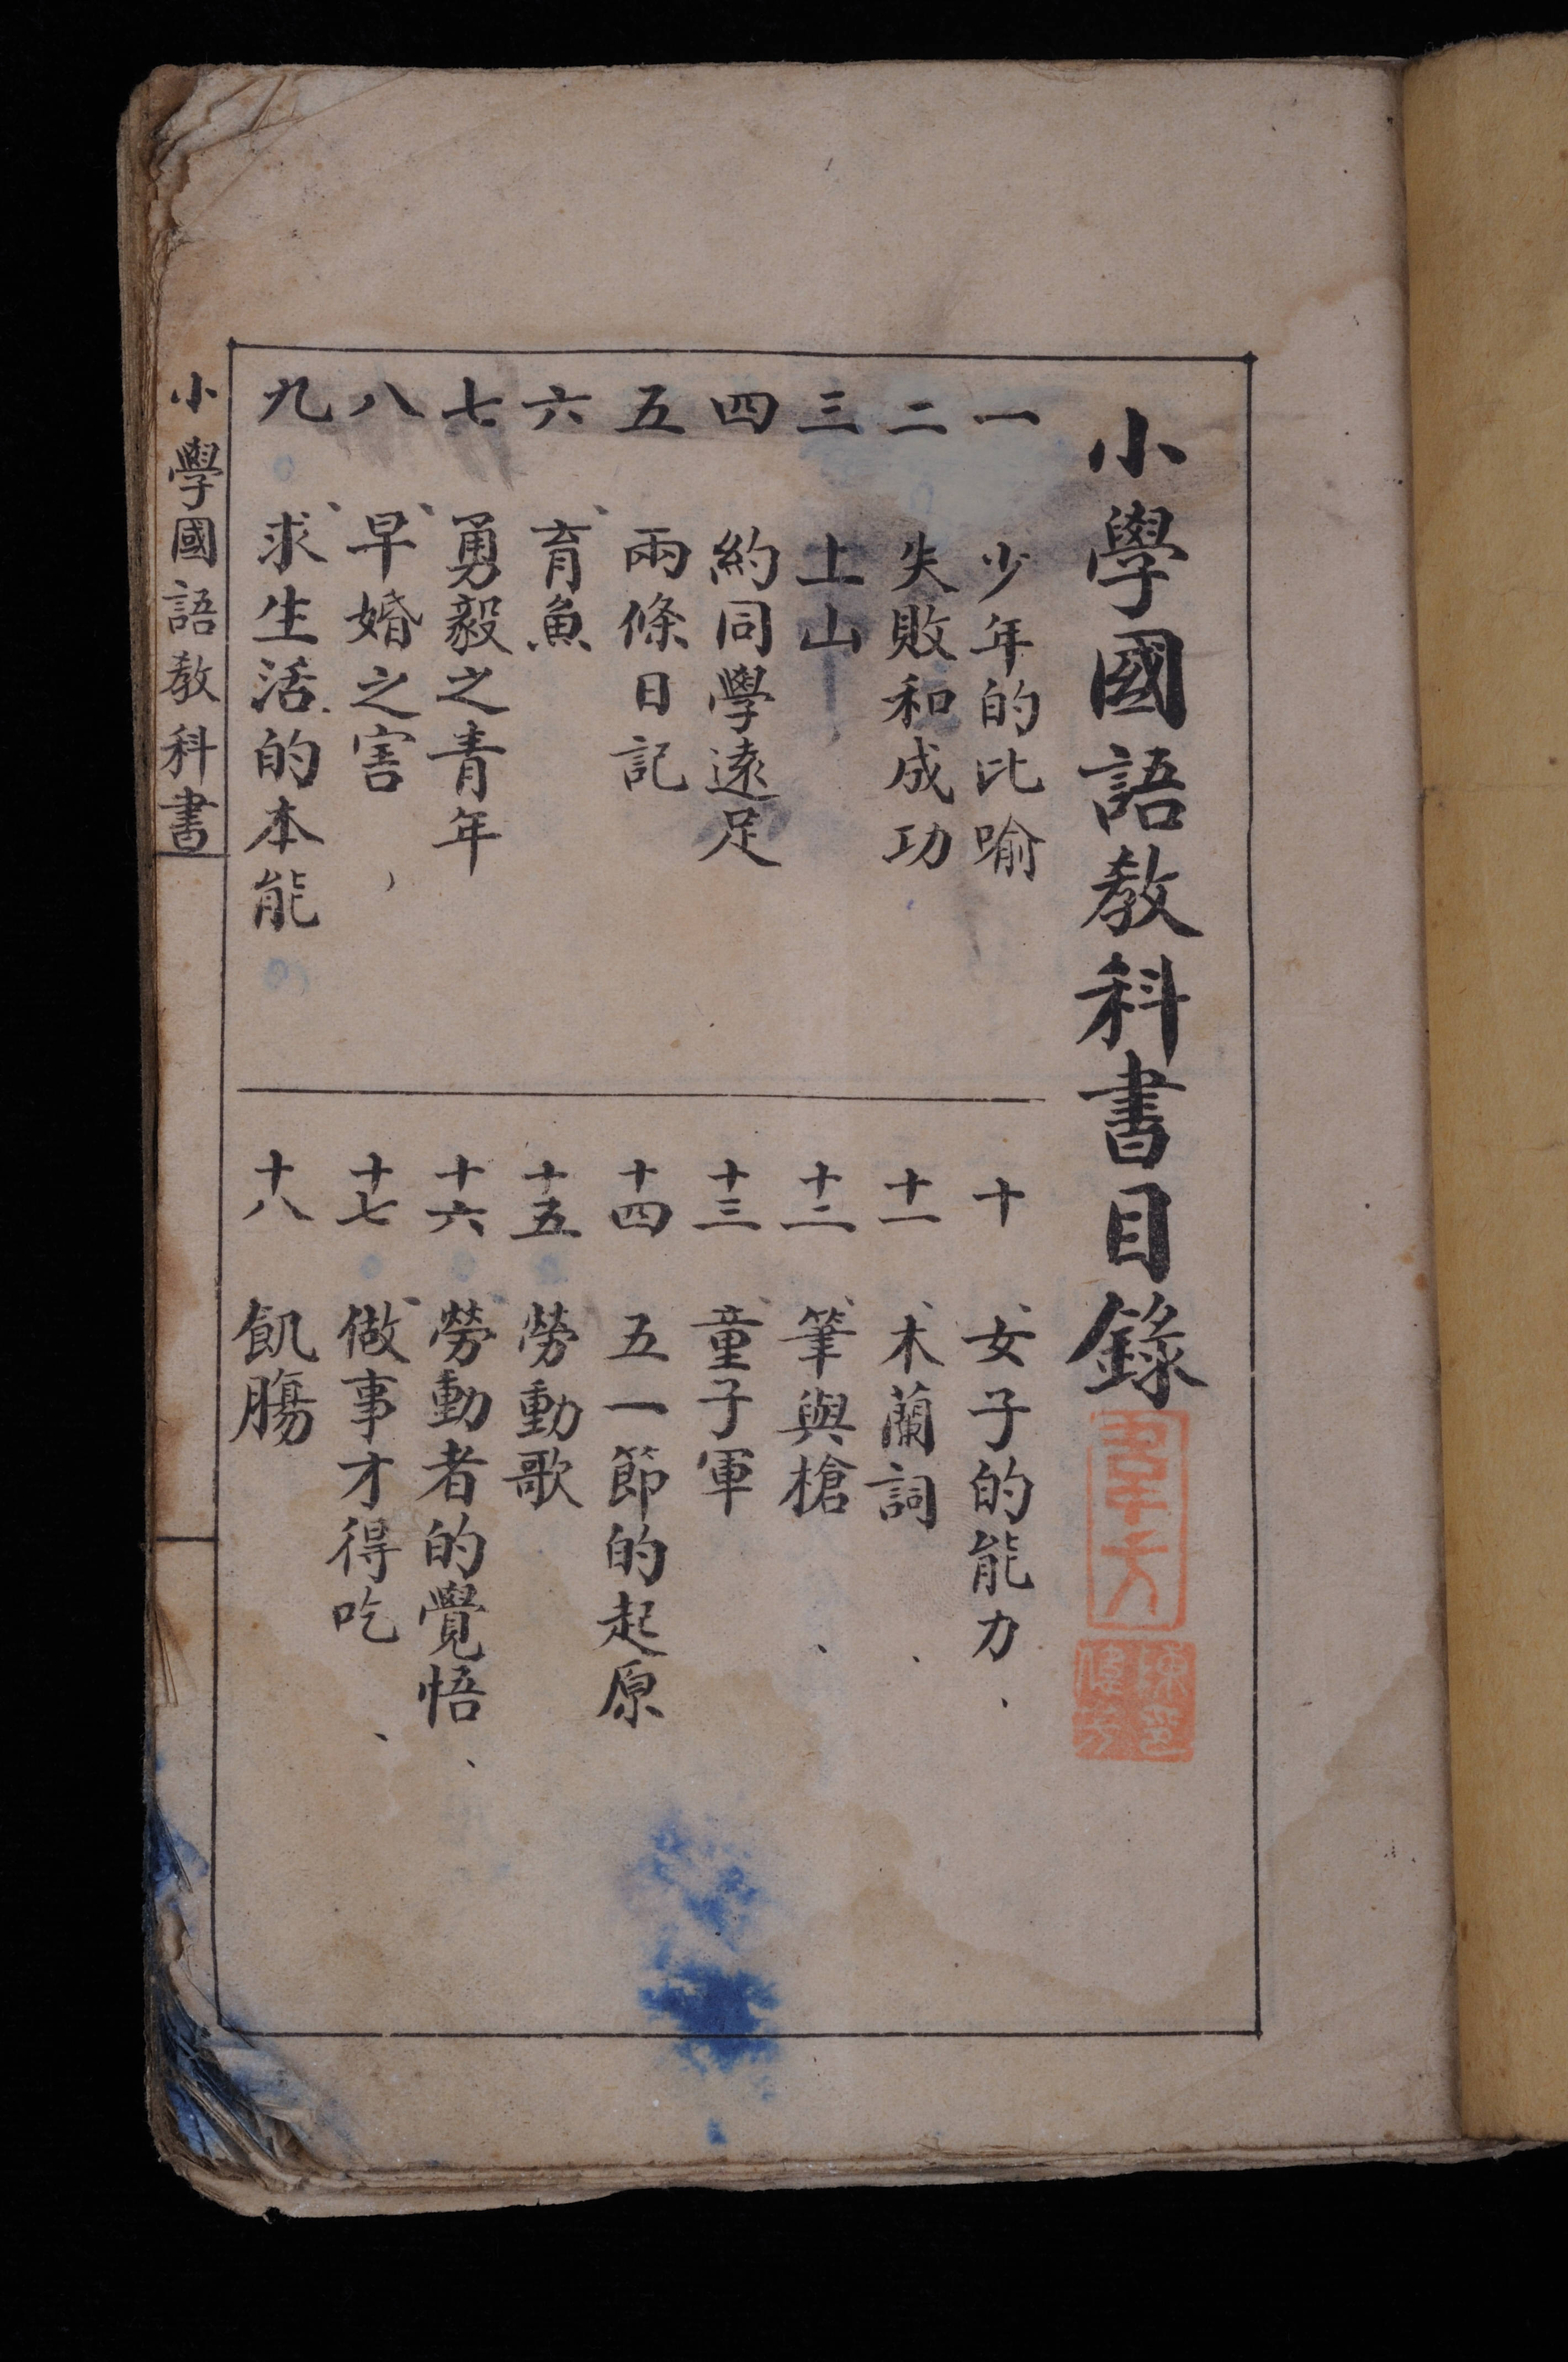 小學國語教科書目錄
一 少年的比喻
二 失敗和成功
三 上山
四 約同學遠足
五 兩條日記
六 育魚
七 勇毅之青年
八 早婚之害
九 求生活的本能
十 女子的能力
十一 木蘭詞
十二 筆與槍
十三 童子軍
十四 五一節的起原
十五 勞動歌
十六 勞動者的覺悟
十七 做事才得吃
十八 飢腸
小學國語教科書